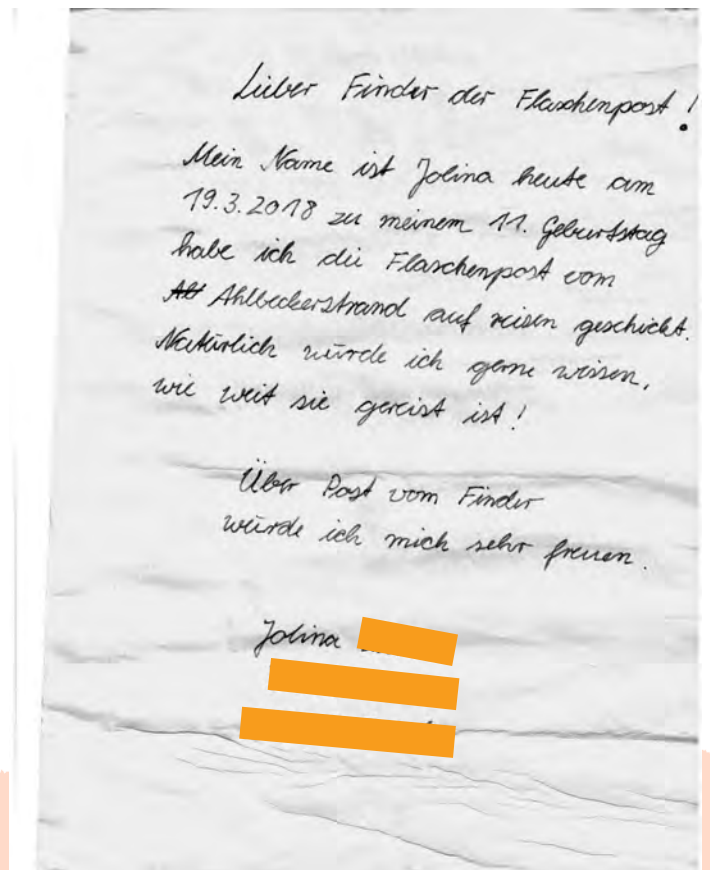 Lieber Finder der Flaschenpost!
Mein Name ist Jolina heute am
19.3.2018 zu meinem 11. Geburtstag
habe ich die Flaschenpost vom
Ahlbeckerstrand auf reisen geschickt.
Natürlich würde ich gerne wissen,
wie weit sie gereist ist!
Über Post vom Finder
würde ich mich sehr freuen.
Jolina